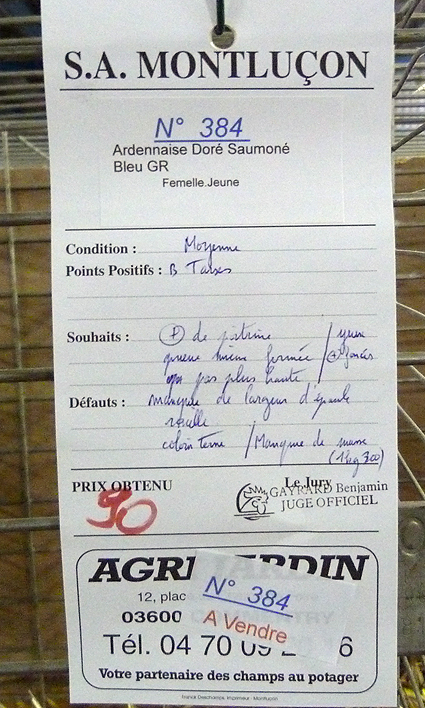 S.A. MONTLUÇON
N° 384
Ardennaise Doré Saumoné
Bleu GR
Femelle.Jeune
Condition : Moyenne
Points Positifs : B Tarses
Souhaits : + de poitrine / yeux
queue mieux fermée / + foncés
pas plus haute
Défauts : manque de largeur d'épaule
coloris terne / Manque de masse
(1kg 300)
PRIX OBTENU
90
Le Jury
GAYRARD Benjamin
JUGE OFFICIEL
AGRI JARDIN
12, plac
03600
N° 384
A Vendre
TRY
Tél. 04 70 09 2 6
Votre partenaire des champs au potager
Franck Deschamps, Imprimeur - Montluçon